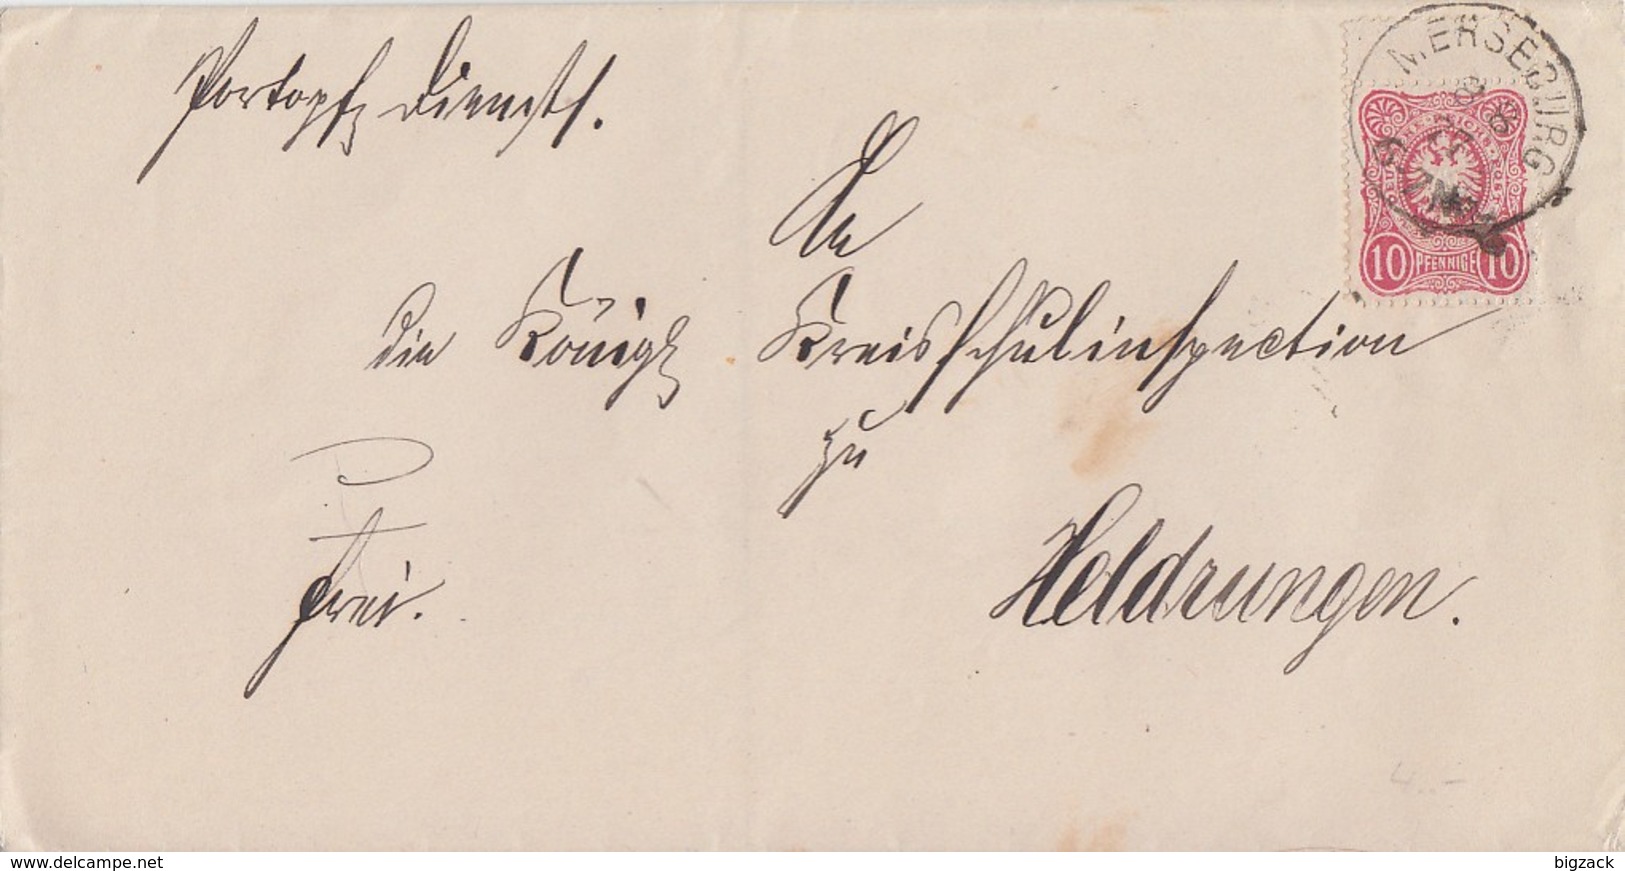 Portopfl Dienst.
MERSEBURG
An
die Königl Kreisschulinspection
zu
Heldrungen.
frei.
10 PFENNIGE 10
www.delcampe.net
bigzack